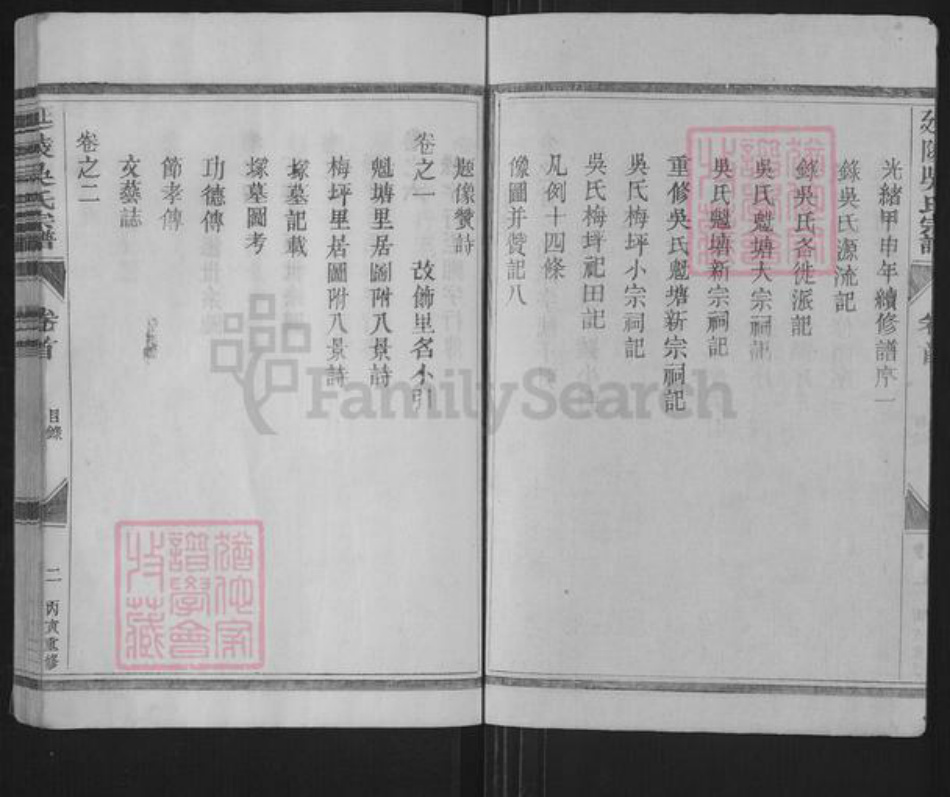 延陵吳氏宗譜
卷首
光緒甲申年續修譜序一
錄吳氏源流記
錄吳氏各徙派記
吳氏魁塘大宗祠記
吳氏魁塘新宗祠記
重修吳氏魁塘新宗祠記
吳氏梅坪小宗祠記
吳氏梅坪祀田記
凡例十四條
像圖并贊記八
題像贊詩
卷之一 改飾里名小引
魁塘里居圖附八景詩
梅坪里居圖附八景詩
塚墓記載
塚墓圖考
功德傳
節孝傳
文藝誌
卷之二
延陵吳氏宗譜
卷首
目錄
二
丙寅重修
猶他家
譜學會
收藏
猶他家
譜學會
收藏
FamilySearch